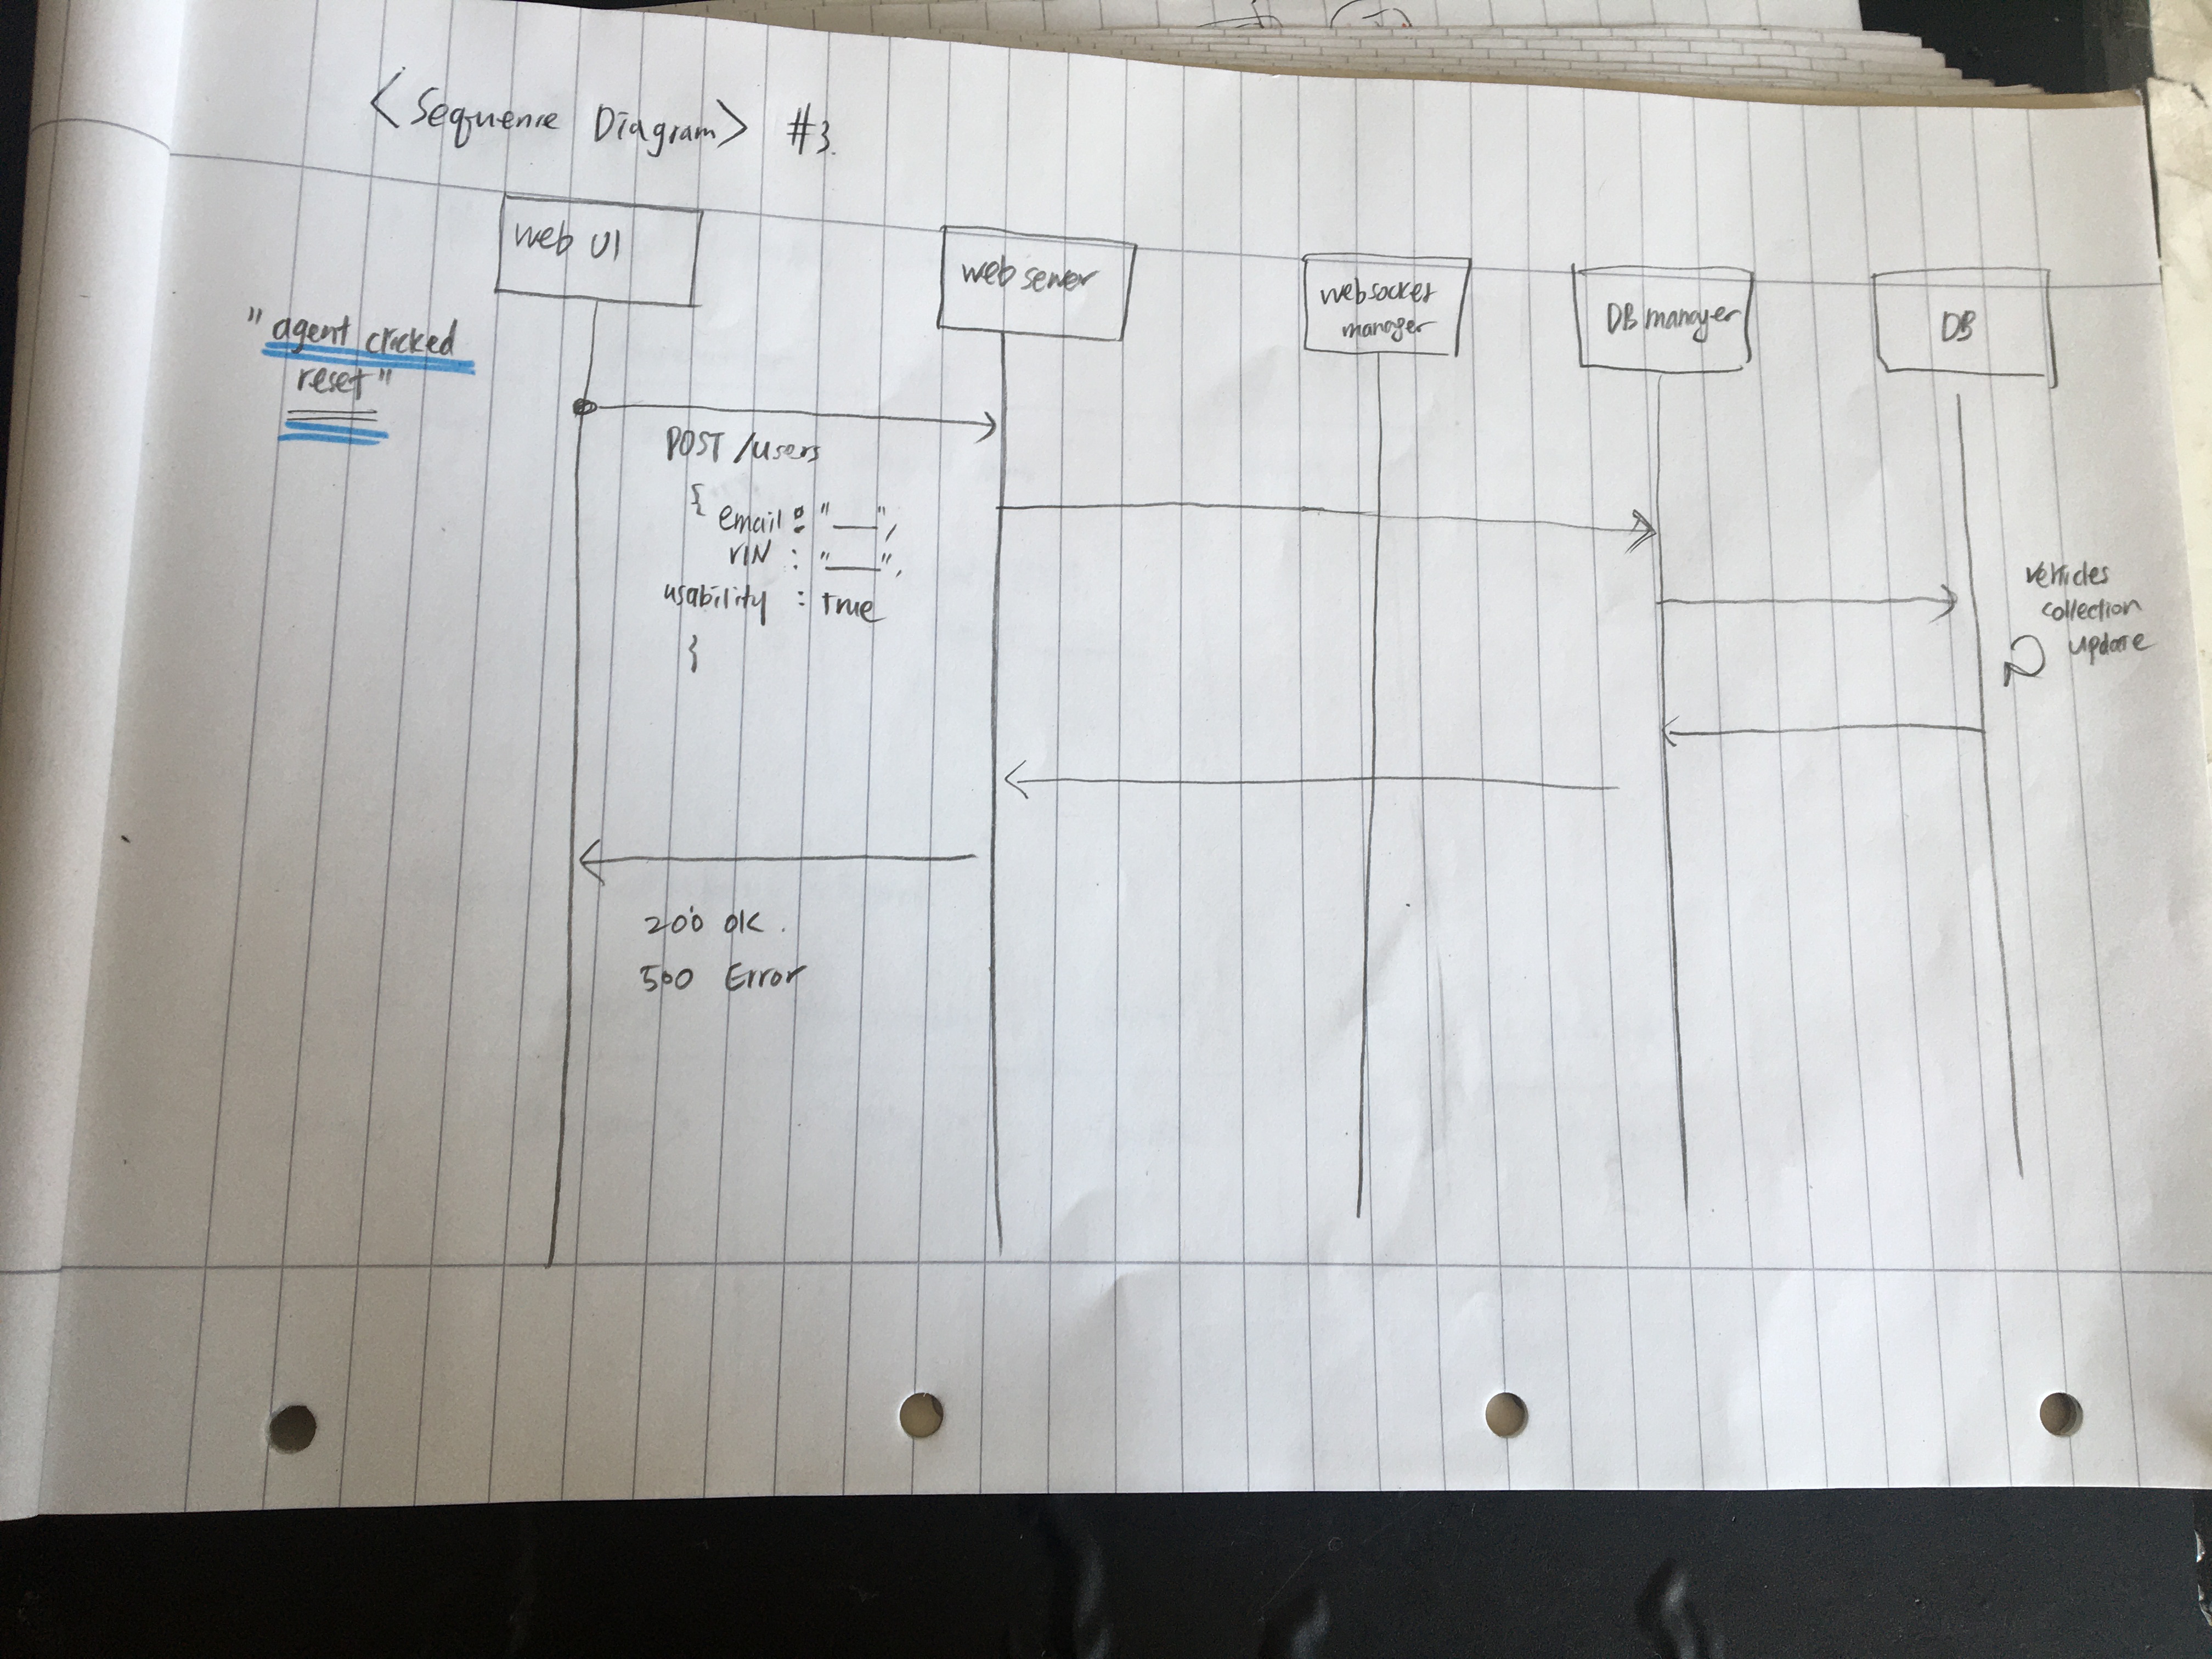 <Sequence Diagram> #3.
web UI
web server
websocket
manager
DB manager
DB
"agent clicked
reset"
POST /users
{
email : "____",
VIN : "____",
usability : true
}
vehicles
collection
update
200 OK.
500 Error